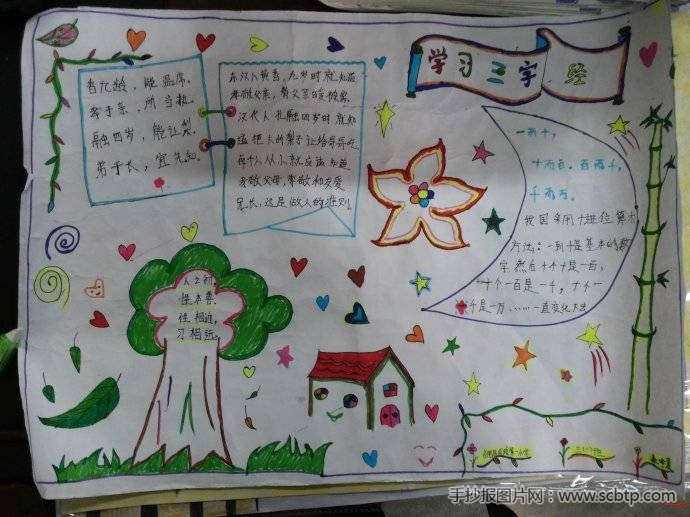 学习三字经
香九龄，能温席。
孝于亲，所当执。
融四岁，能让梨。
弟于长，宜先知。
东汉人黄香，九岁时就知道
孝敬父亲，替父亲暖被窝。
汉代人孔融四岁时就知
道把大的梨子让给哥哥吃
每个人从小就应该知道
孝敬父母，尊敬和友爱
兄长，这是做人的准则
一而十，
十而百。百而千，
千而万。
我国采用十进位算术
方法：一到十是基本的数
字，然后十个十是一百，
十个一百是一千，十个一
千是一万……一直变化下去
人之初，
性本善。
性相近，
习相远。
手抄报图片网：www.scbtp.com